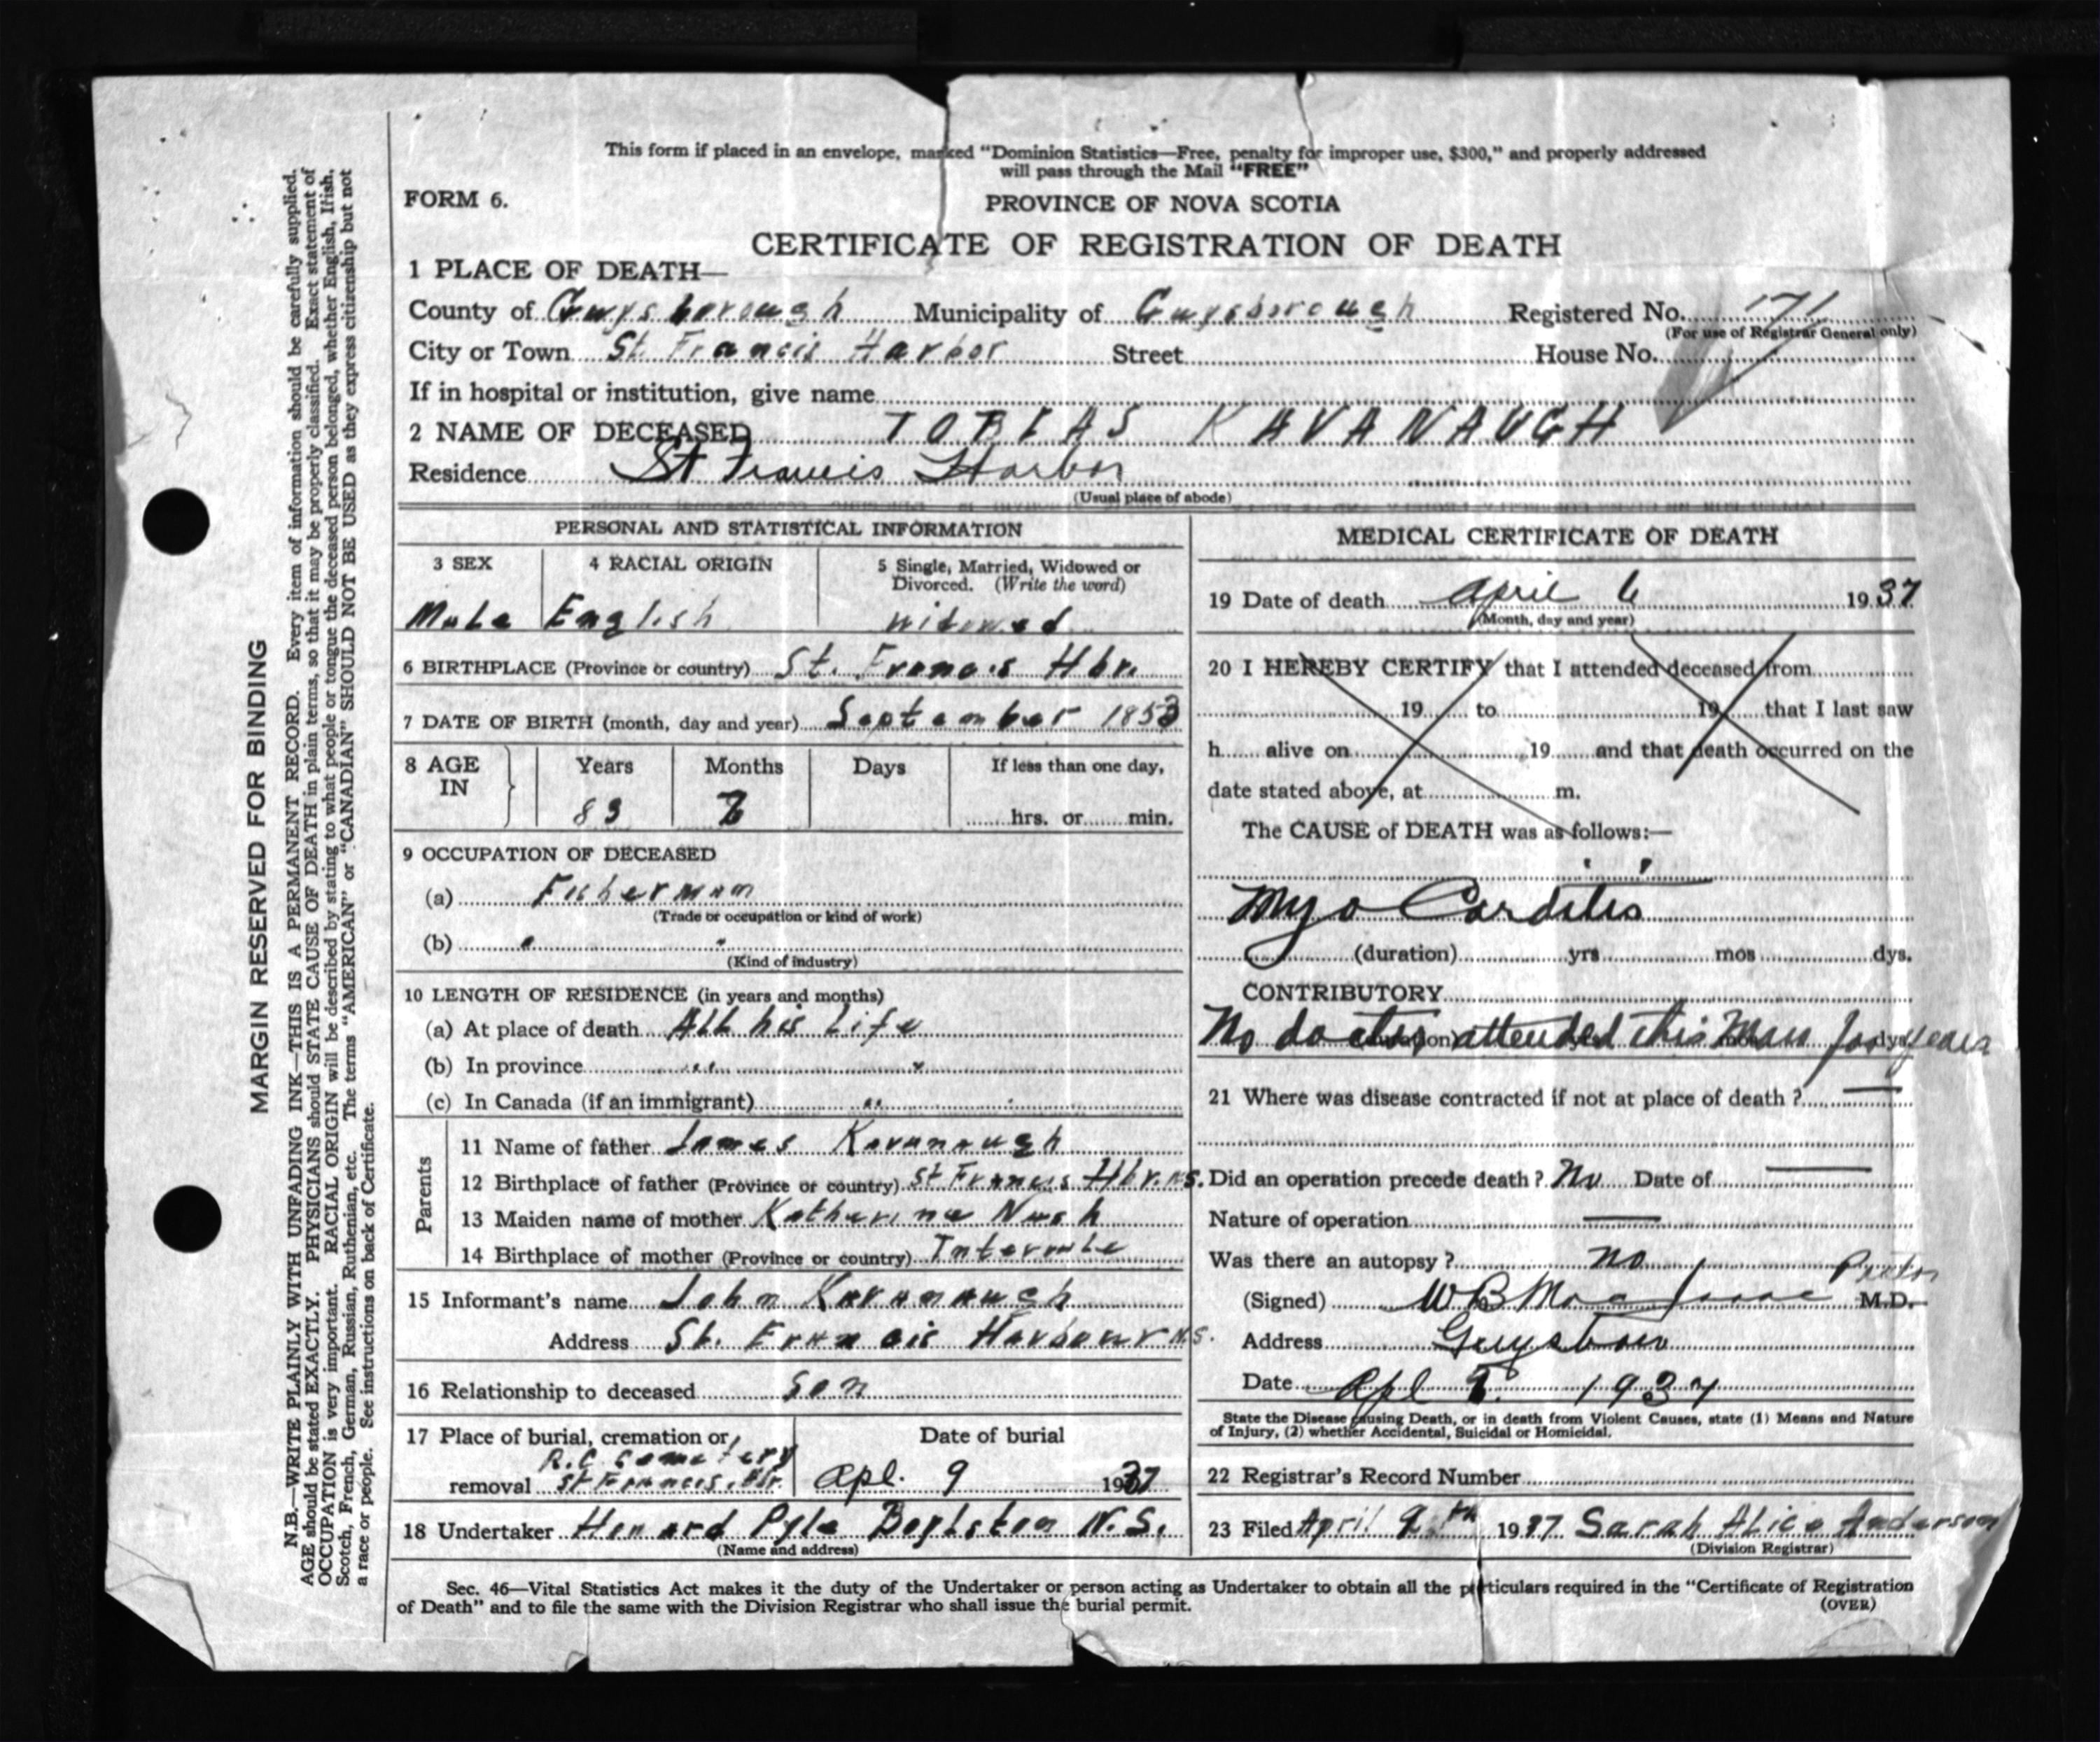 This form if placed in an envelope, marked "Dominion Statistics—Free, penalty for improper use, $300," and properly addressed
will pass through the Mail "FREE"
FORM 6.
PROVINCE OF NOVA SCOTIA
CERTIFICATE OF REGISTRATION OF DEATH
1 PLACE OF DEATH—
County of Guysborough Municipality of Guysborough Registered No. 171
(For use of Registrar General only)
City or Town St. Francis Harbor Street House No.
If in hospital or institution, give name
2 NAME OF DECEASED TOBIAS KAVANAUGH
Residence St Francis Harbor
(Usual place of abode)
PERSONAL AND STATISTICAL INFORMATION
3 SEX 4 RACIAL ORIGIN 5 Single, Married, Widowed or
Divorced. (Write the word)
Male English widowed
6 BIRTHPLACE (Province or country) St. Francis Hbr.
7 DATE OF BIRTH (month, day and year) September 1853
8 AGE IN Years Months Days If less than one day,
83 hrs. or min.
9 OCCUPATION OF DECEASED
(a) Fisherman
(Trade or occupation or kind of work)
(b) " "
(Kind of industry)
10 LENGTH OF RESIDENCE (in years and months)
(a) At place of death All his Life
(b) In province " "
(c) In Canada (if an immigrant) "
Parents
11 Name of father James Kavanaugh
12 Birthplace of father (Province or country) St Francis Hbr. N.S.
13 Maiden name of mother Katherine Nash
14 Birthplace of mother (Province or country) Intervale
15 Informant's name John Kavanaugh
Address St. Francis Harbour N.S.
16 Relationship to deceased son
17 Place of burial, cremation or Date of burial
R.C. Cemetery
removal St Francis. Hbr. Apl. 9 1937
18 Undertaker Howard Pyle Boylston N.S.
(Name and address)
MEDICAL CERTIFICATE OF DEATH
19 Date of death April 6 1937
(Month, day and year)
20 I HEREBY CERTIFY that I attended deceased from
19 to 19 that I last saw
h alive on 19 and that death occurred on the
date stated above, at m.
The CAUSE of DEATH was as follows:—
Myo Carditis
(duration) yrs mos dys.
CONTRIBUTORY
No doctor attended this man for years
(duration) yrs mos dys
21 Where was disease contracted if not at place of death ? —
Did an operation precede death ? No Date of —
Nature of operation —
Was there an autopsy ? no
(Signed) W B MacIsaac M.D.
Address Guysboro
Date Apl 1937
State the Disease causing Death, or in death from Violent Causes, state (1) Means and Nature
of Injury, (2) whether Accidental, Suicidal or Homicidal.
22 Registrar's Record Number
23 Filed April 9th 1937 Sarah Alice Anderson
(Division Registrar)
Sec. 46—Vital Statistics Act makes it the duty of the Undertaker or person acting as Undertaker to obtain all the particulars required in the "Certificate of Registration
of Death" and to file the same with the Division Registrar who shall issue the burial permit.
(OVER)
MARGIN RESERVED FOR BINDING
N.B.—WRITE PLAINLY WITH UNFADING INK—THIS IS A PERMANENT RECORD. Every item of information should be carefully supplied.
AGE should be stated EXACTLY. PHYSICIANS should STATE CAUSE OF DEATH in plain terms, so that it may be properly classified. Exact statement of
OCCUPATION is very important. RACIAL ORIGIN will be described by stating to what people or tongue the deceased person belonged, whether English, Irish,
Scotch, French, German, Russian, Ruthenian, etc. The terms "AMERICAN" or "CANADIAN" SHOULD NOT BE USED as they express citizenship but not
a race or people. See instructions on back of Certificate.